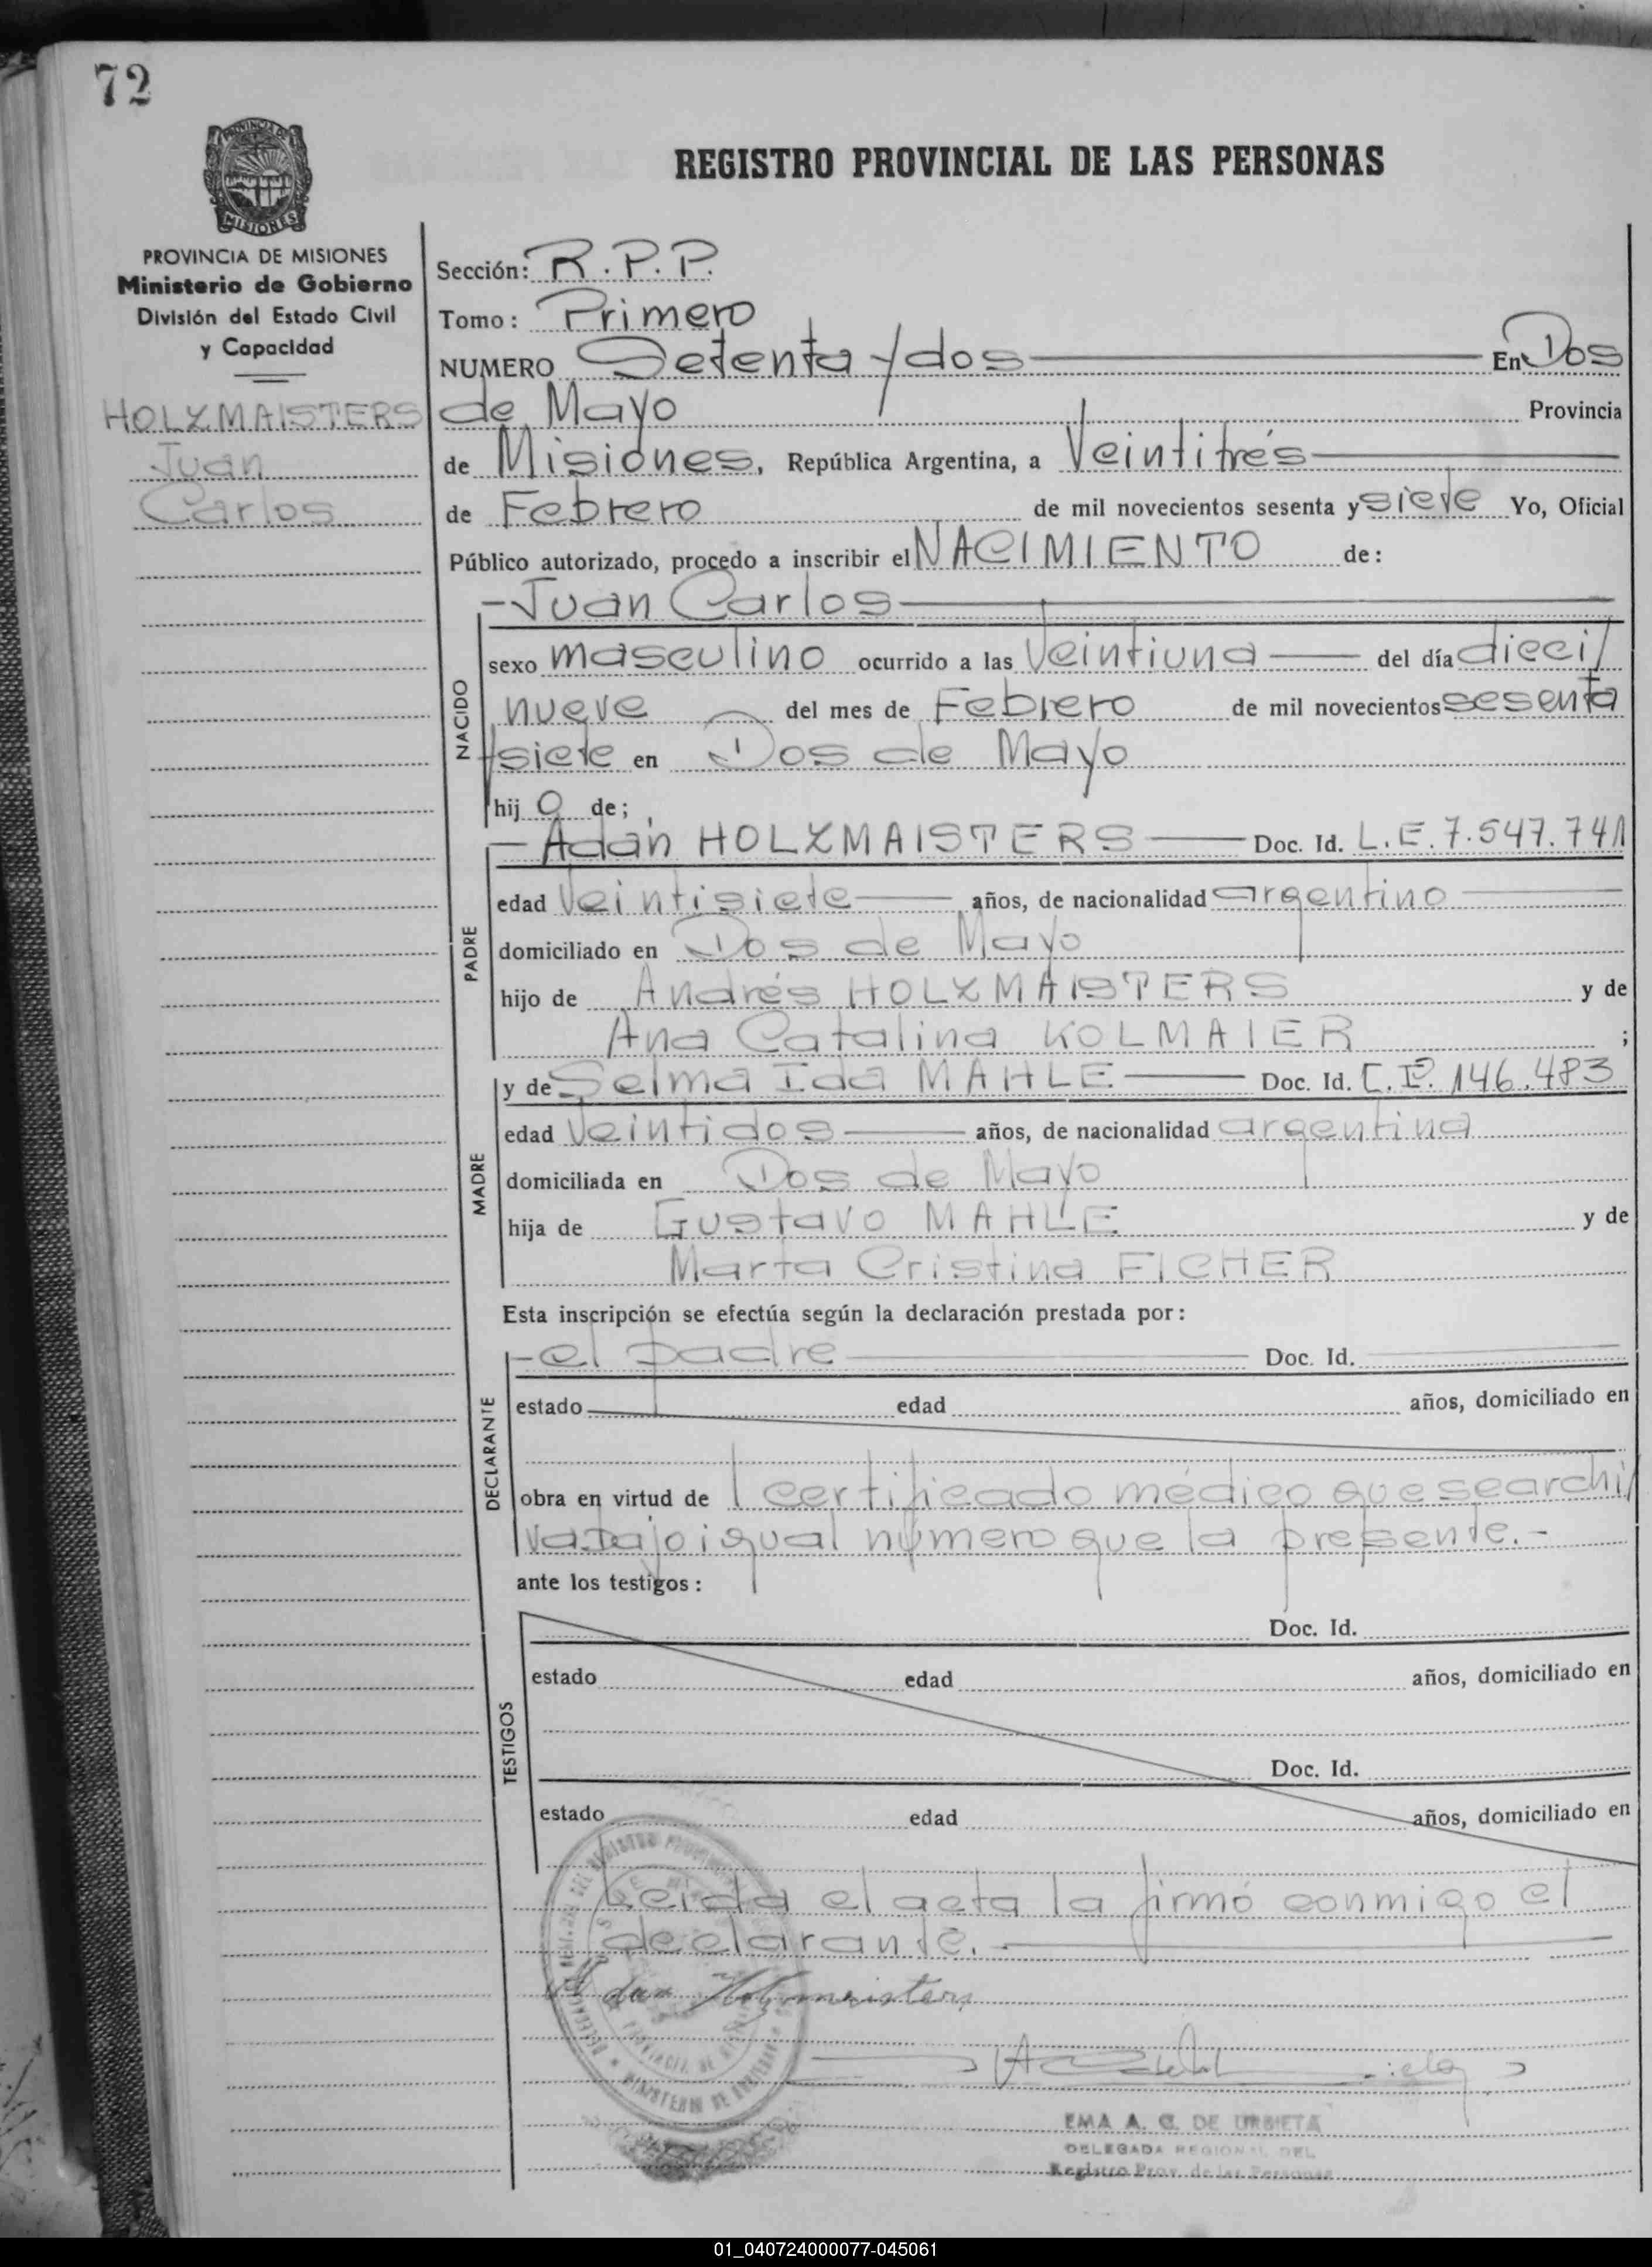 72
PROVINCIA DE
MISIONES
REGISTRO PROVINCIAL DE LAS PERSONAS
PROVINCIA DE MISIONES
Ministerio de Gobierno
División del Estado Civil
y Capacidad
HOLZMAISTERS
Juan
Carlos
Sección: R.P.P.
Tomo: Primero
NUMERO Setenta y dos En Dos
de Mayo Provincia
de Misiones, República Argentina, a Veintitrés
de Febrero de mil novecientos sesenta y siete Yo, Oficial
Público autorizado, procedo a inscribir el NACIMIENTO de:
-Juan Carlos
NACIDO
sexo masculino ocurrido a las Veintiuna del día dieci/
nueve del mes de Febrero de mil novecientos sesenta
y siete en Dos de Mayo
hijo de;
PADRE
- Adán HOLZMAISTERS Doc. Id. L.E. 7.547.741
edad Veintisiete años, de nacionalidad argentino
domiciliado en Dos de Mayo
hijo de Andrés HOLZMAISTERS y de
Ana Catalina KOLMAIER ;
MADRE
y de Selma Ida MAHLE Doc. Id. C.I. 146.483
edad Veintidos años, de nacionalidad argentina
domiciliada en Dos de Mayo
hija de Gustavo MAHLE y de
Marta Cristina FICHER
Esta inscripción se efectúa según la declaración prestada por:
DECLARANTE
-el padre Doc. Id.
estado edad años, domiciliado en
obra en virtud de l certificado médico que se archi/
va bajo igual número que la presente.-
ante los testigos:
TESTIGOS
Doc. Id.
estado edad años, domiciliado en
Doc. Id.
estado edad años, domiciliado en
Leida el acta la firmó conmigo el
declarante.
Adan Holzmeisters
EMA A. C. DE URBIETA
DELEGADA REGIONAL DEL
Registro Prov. de las Personas
01_040724000077-045061